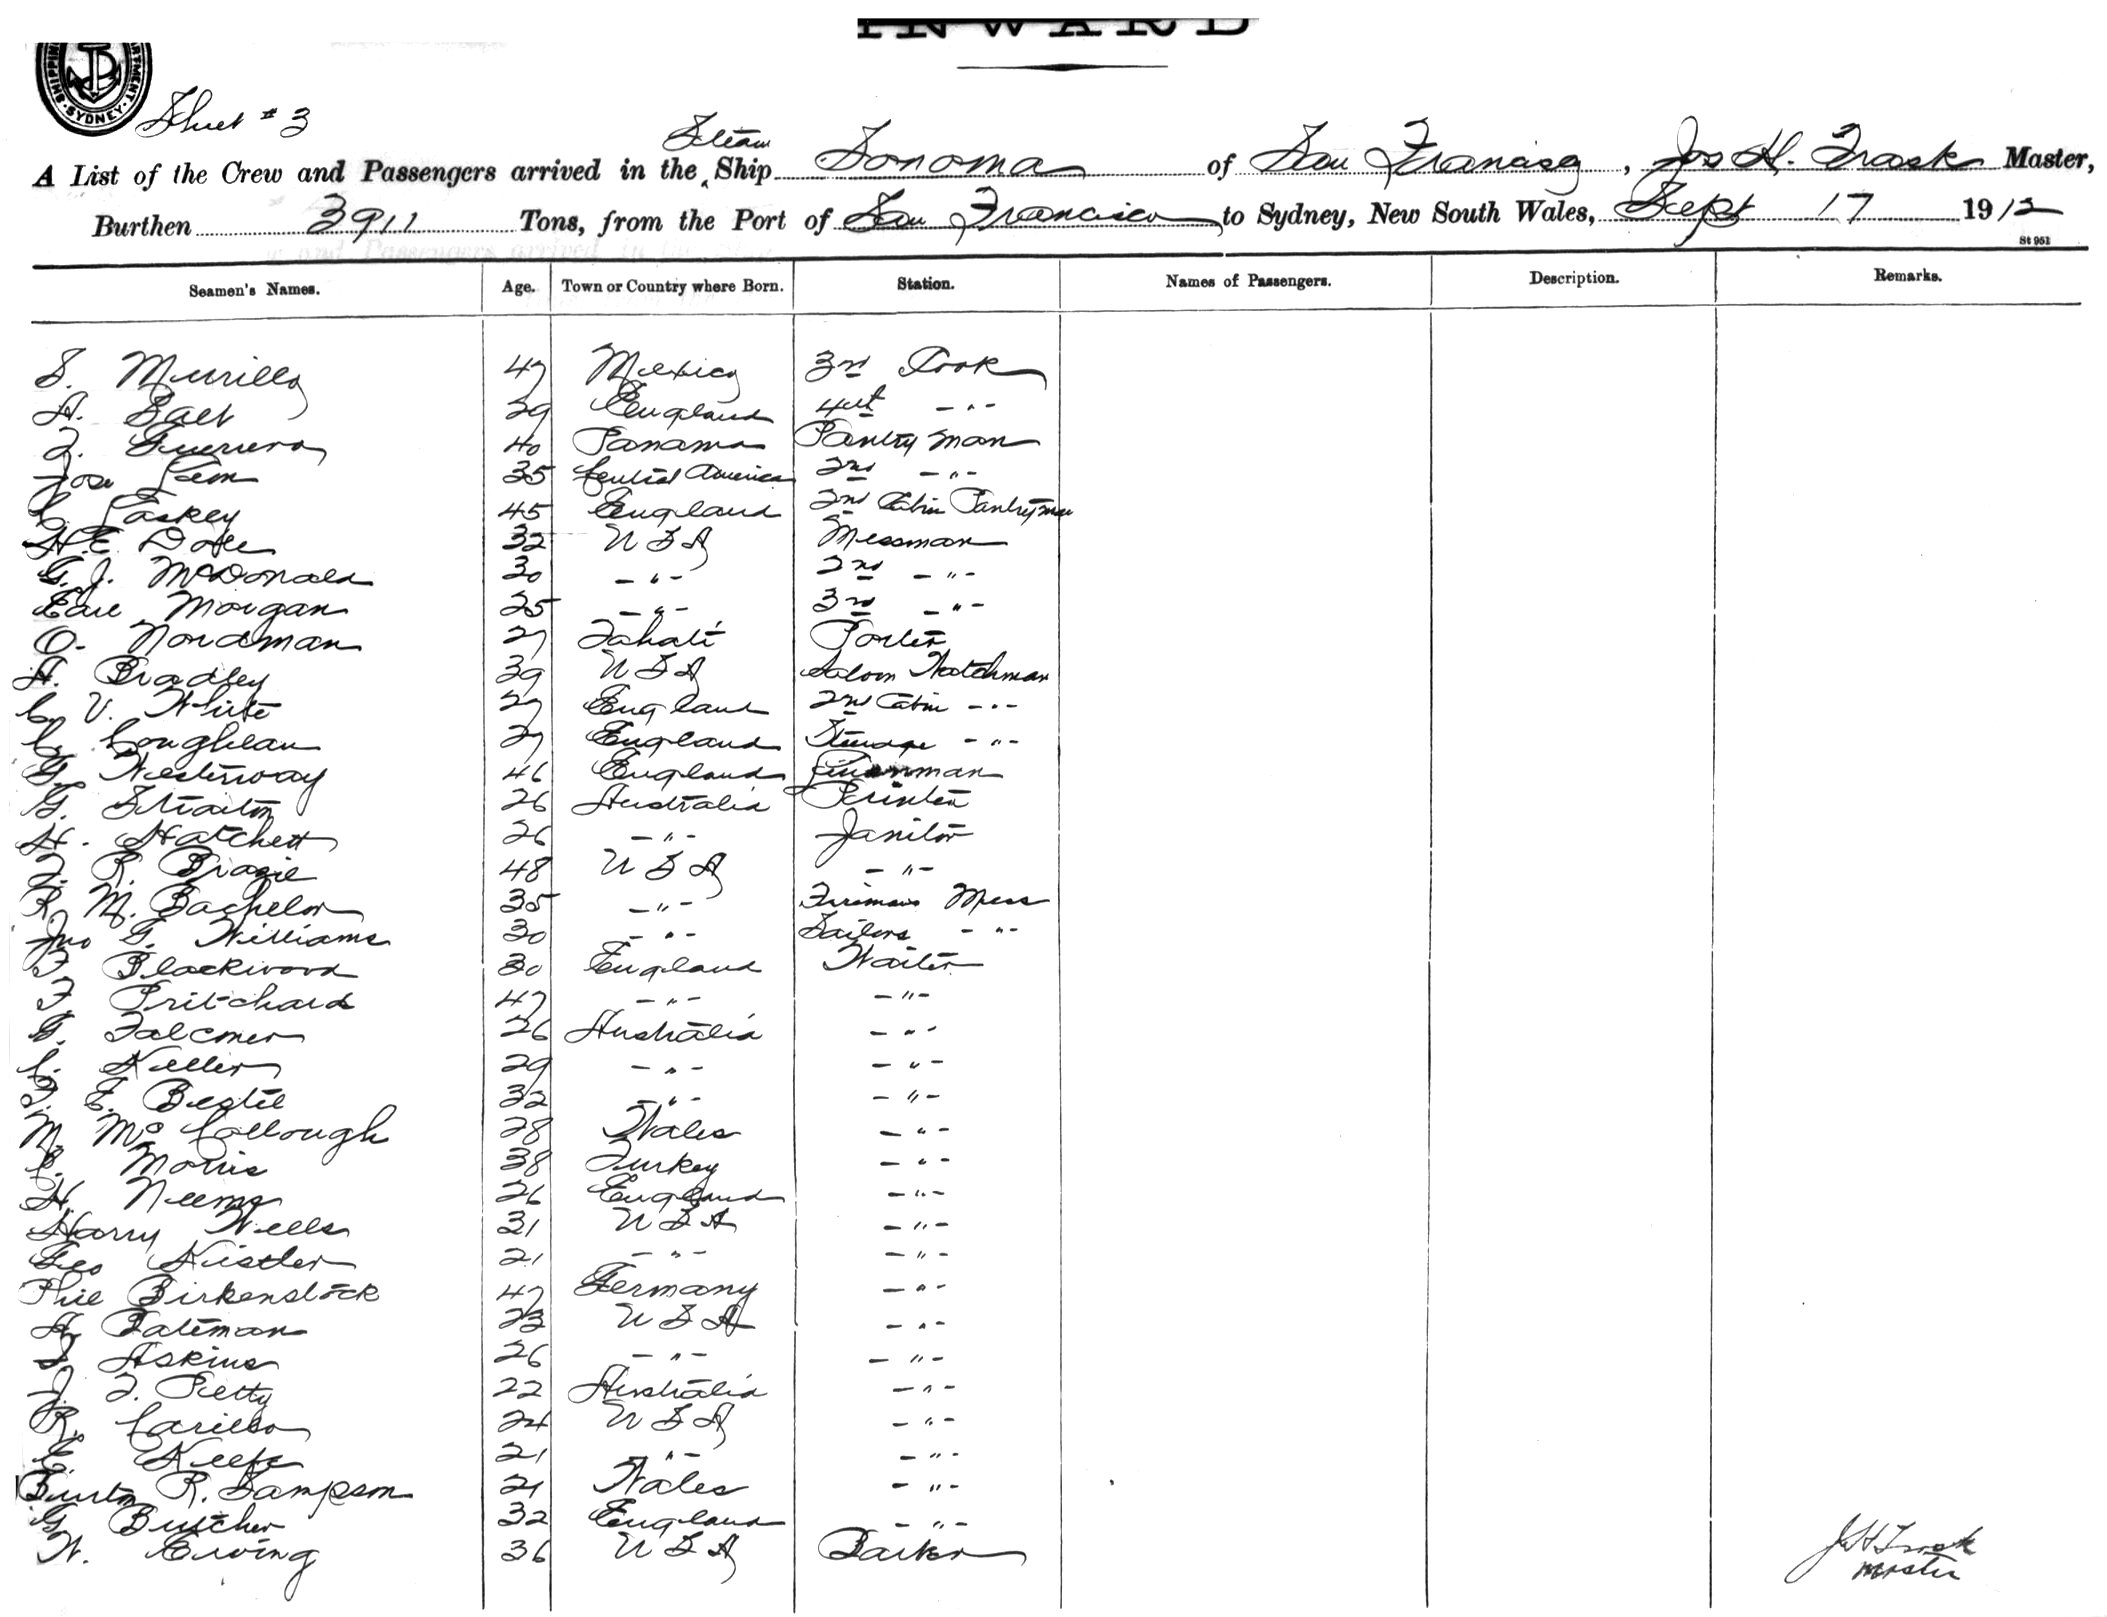 INWARD
SYDNEY
Sheet # 3
Steam
A List of the Crew and Passengers arrived in the Ship Sonoma of San Francisco, Jos H. Trask Master,
Burthen 3911 Tons, from the Port of San Francisco to Sydney, New South Wales, Sept 17 1912
St 951
Seamen's Names. Age. Town or Country where Born. Station. Names of Passengers. Description. Remarks.
S. Murillo 47 Mexico 3rd Cook
A. Salt 29 England 4th -"-
F. Guerrero 40 Panama Pantry man
Jose Leon 35 Central America 2nd -"-
C. Laskey 45 England 2nd Cabin Pantryman
H.E. 32 U S A Messman
G. J. McDonald 30 -"- 2nd -"-
Earl Morgan 25 -"- 3rd -"-
O. Nordman 27 Tahati Porter
A. Bradley 39 U S A Saloon Watchman
C. V. White 27 England 2nd Cabin -"-
C. Coughlan 27 England Steerage -"-
G. Westerway 46 England Linenman
G. Straiton 26 Australia Printer
H. Hatchett 26 -"- Janitor
F. R. Brazie 48 U S A -"-
R. M. Bachelor 35 -"- Firemans Mess
Jno G. Williams 30 -"- Sailors -"-
F. Blackwood 30 England Waiter
F. Pritchard 47 -"- -"-
G. Falconer 26 Australia -"-
C. Keller 29 -"- -"-
F. E. 32 -"- -"-
M. McCollough 28 Wales -"-
C. Morris 38 Turkey -"-
H. Neems 26 England -"-
Harry Wells 31 U S A -"-
Geo Kistler 21 -"- -"-
Phil Birkenstock 47 Germany -"-
A. Bateman 23 U S A -"-
Askins 26 -"- -"-
J. F. Petty 22 Australia -"-
R. Carillo 24 U S A -"-
E. Keefe 21 -"- -"-
Burton R. Sampson 21 Wales -"-
G. Butcher 32 England -"-
W. Ewing 36 U S A Barker
J H Trask
Master